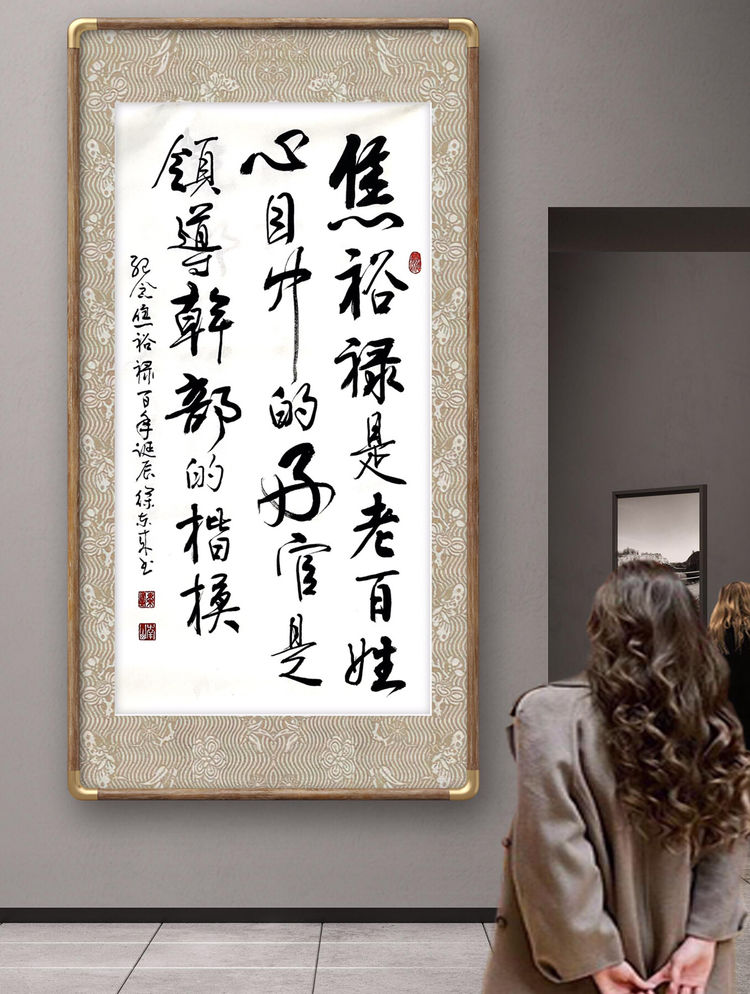 焦裕禄是老百姓
心目中的好官是
領導幹部的楷模
纪念焦裕禄百年诞辰徐东来书